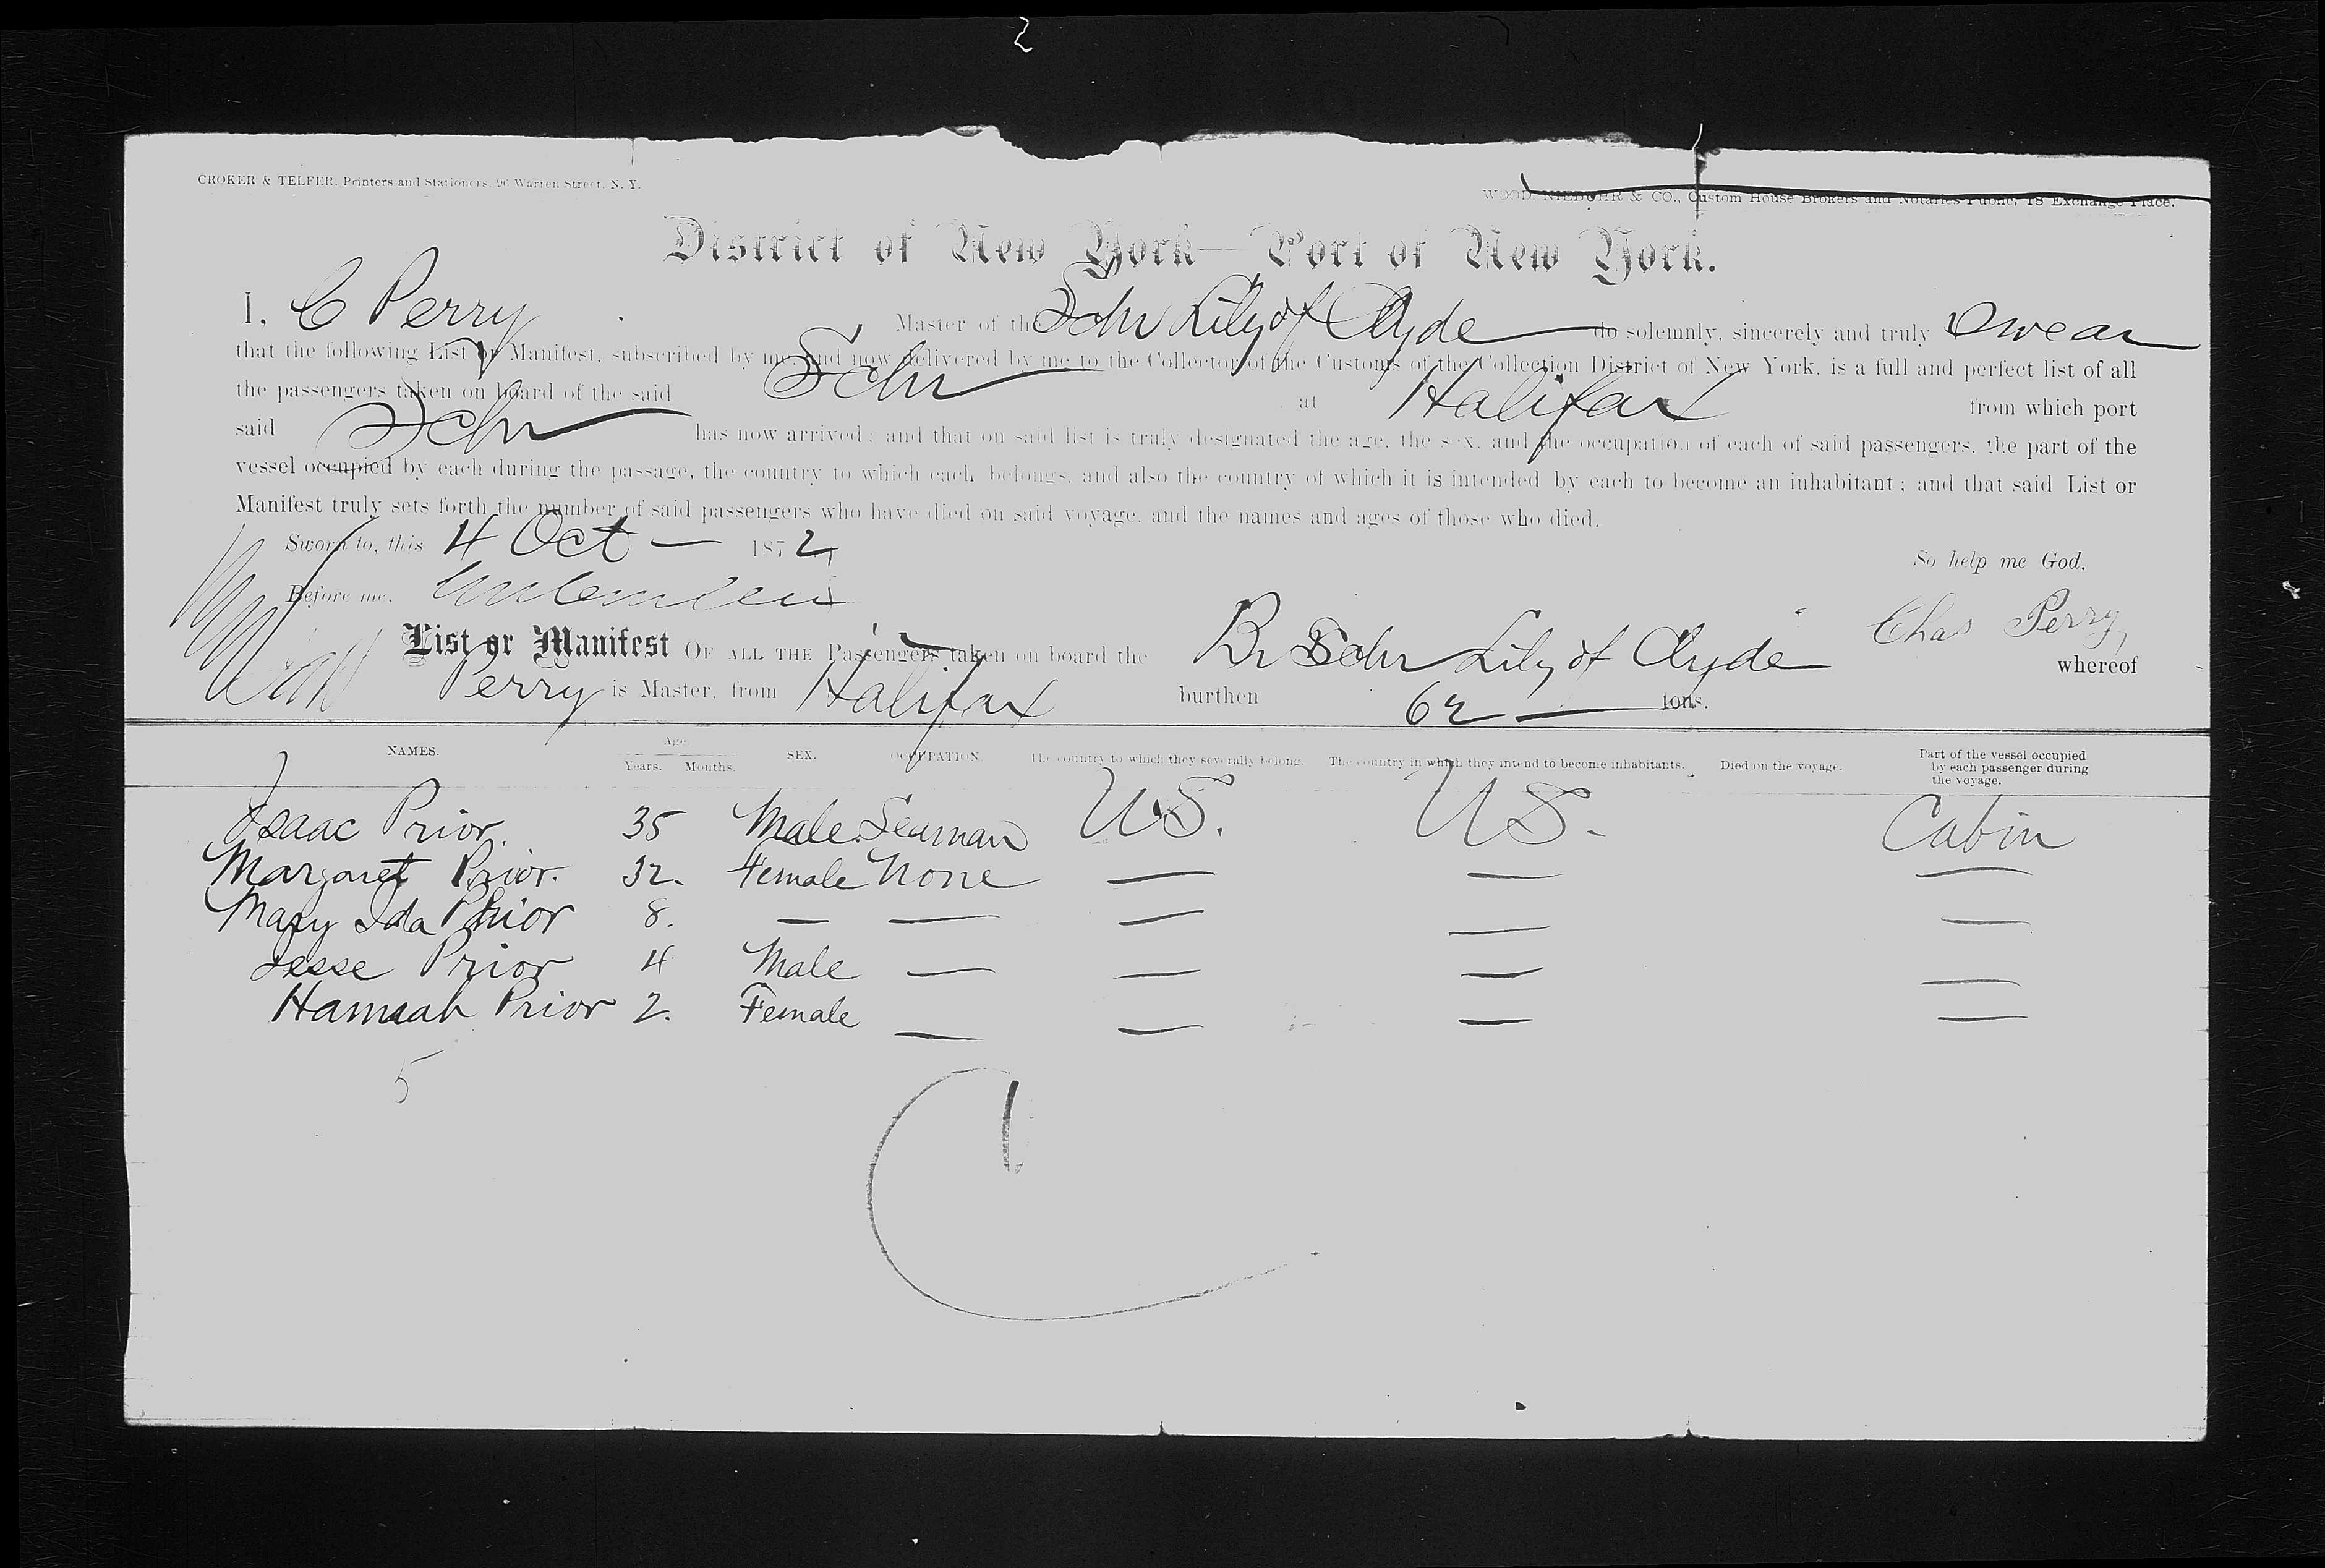 CROKER & TELFER, Printers and Stationers, 96 Warren Street, N. Y.
WOOD, NIEBUHR & CO., Custom House Brokers and Notaries Public, 18 Exchange Place.
District of New York—Port of New York.
I, C Perry Master of the Schr Lily of Clyde do solemnly, sincerely and truly Swear
that the following List or Manifest, subscribed by me, and now delivered by me to the Collector of the Customs of the Collection District of New York, is a full and perfect list of all
the passengers taken on board of the said Schr at Halifax from which port
said Schr has now arrived; and that on said list is truly designated the age, the sex, and the occupation of each of said passengers, the part of the
vessel occupied by each during the passage, the country to which each belongs, and also the country of which it is intended by each to become an inhabitant; and that said List or
Manifest truly sets forth the number of said passengers who have died on said voyage, and the names and ages of those who died.
Sworn to, this 4 Oct — 1872
So help me God.
Before me,
Chas Perry
List or Manifest OF ALL THE Passengers taken on board the Br Schr Lily of Clyde whereof
Perry is Master, from Halifax burthen 62 — tons.
NAMES. Age. Years. Months. SEX. OCCUPATION. The country to which they severally belong. The country in which they intend to become inhabitants. Died on the voyage. Part of the vessel occupied by each passenger during the voyage.
Isaac Prior. 35 Male Seaman U.S. U S. Cabin
Margaret Prior. 32. Female None — — —
Mary Ida Prior 8. — — — — —
Jesse Prior 4 Male — — — —
Hannah Prior 2. Female — — — —
5